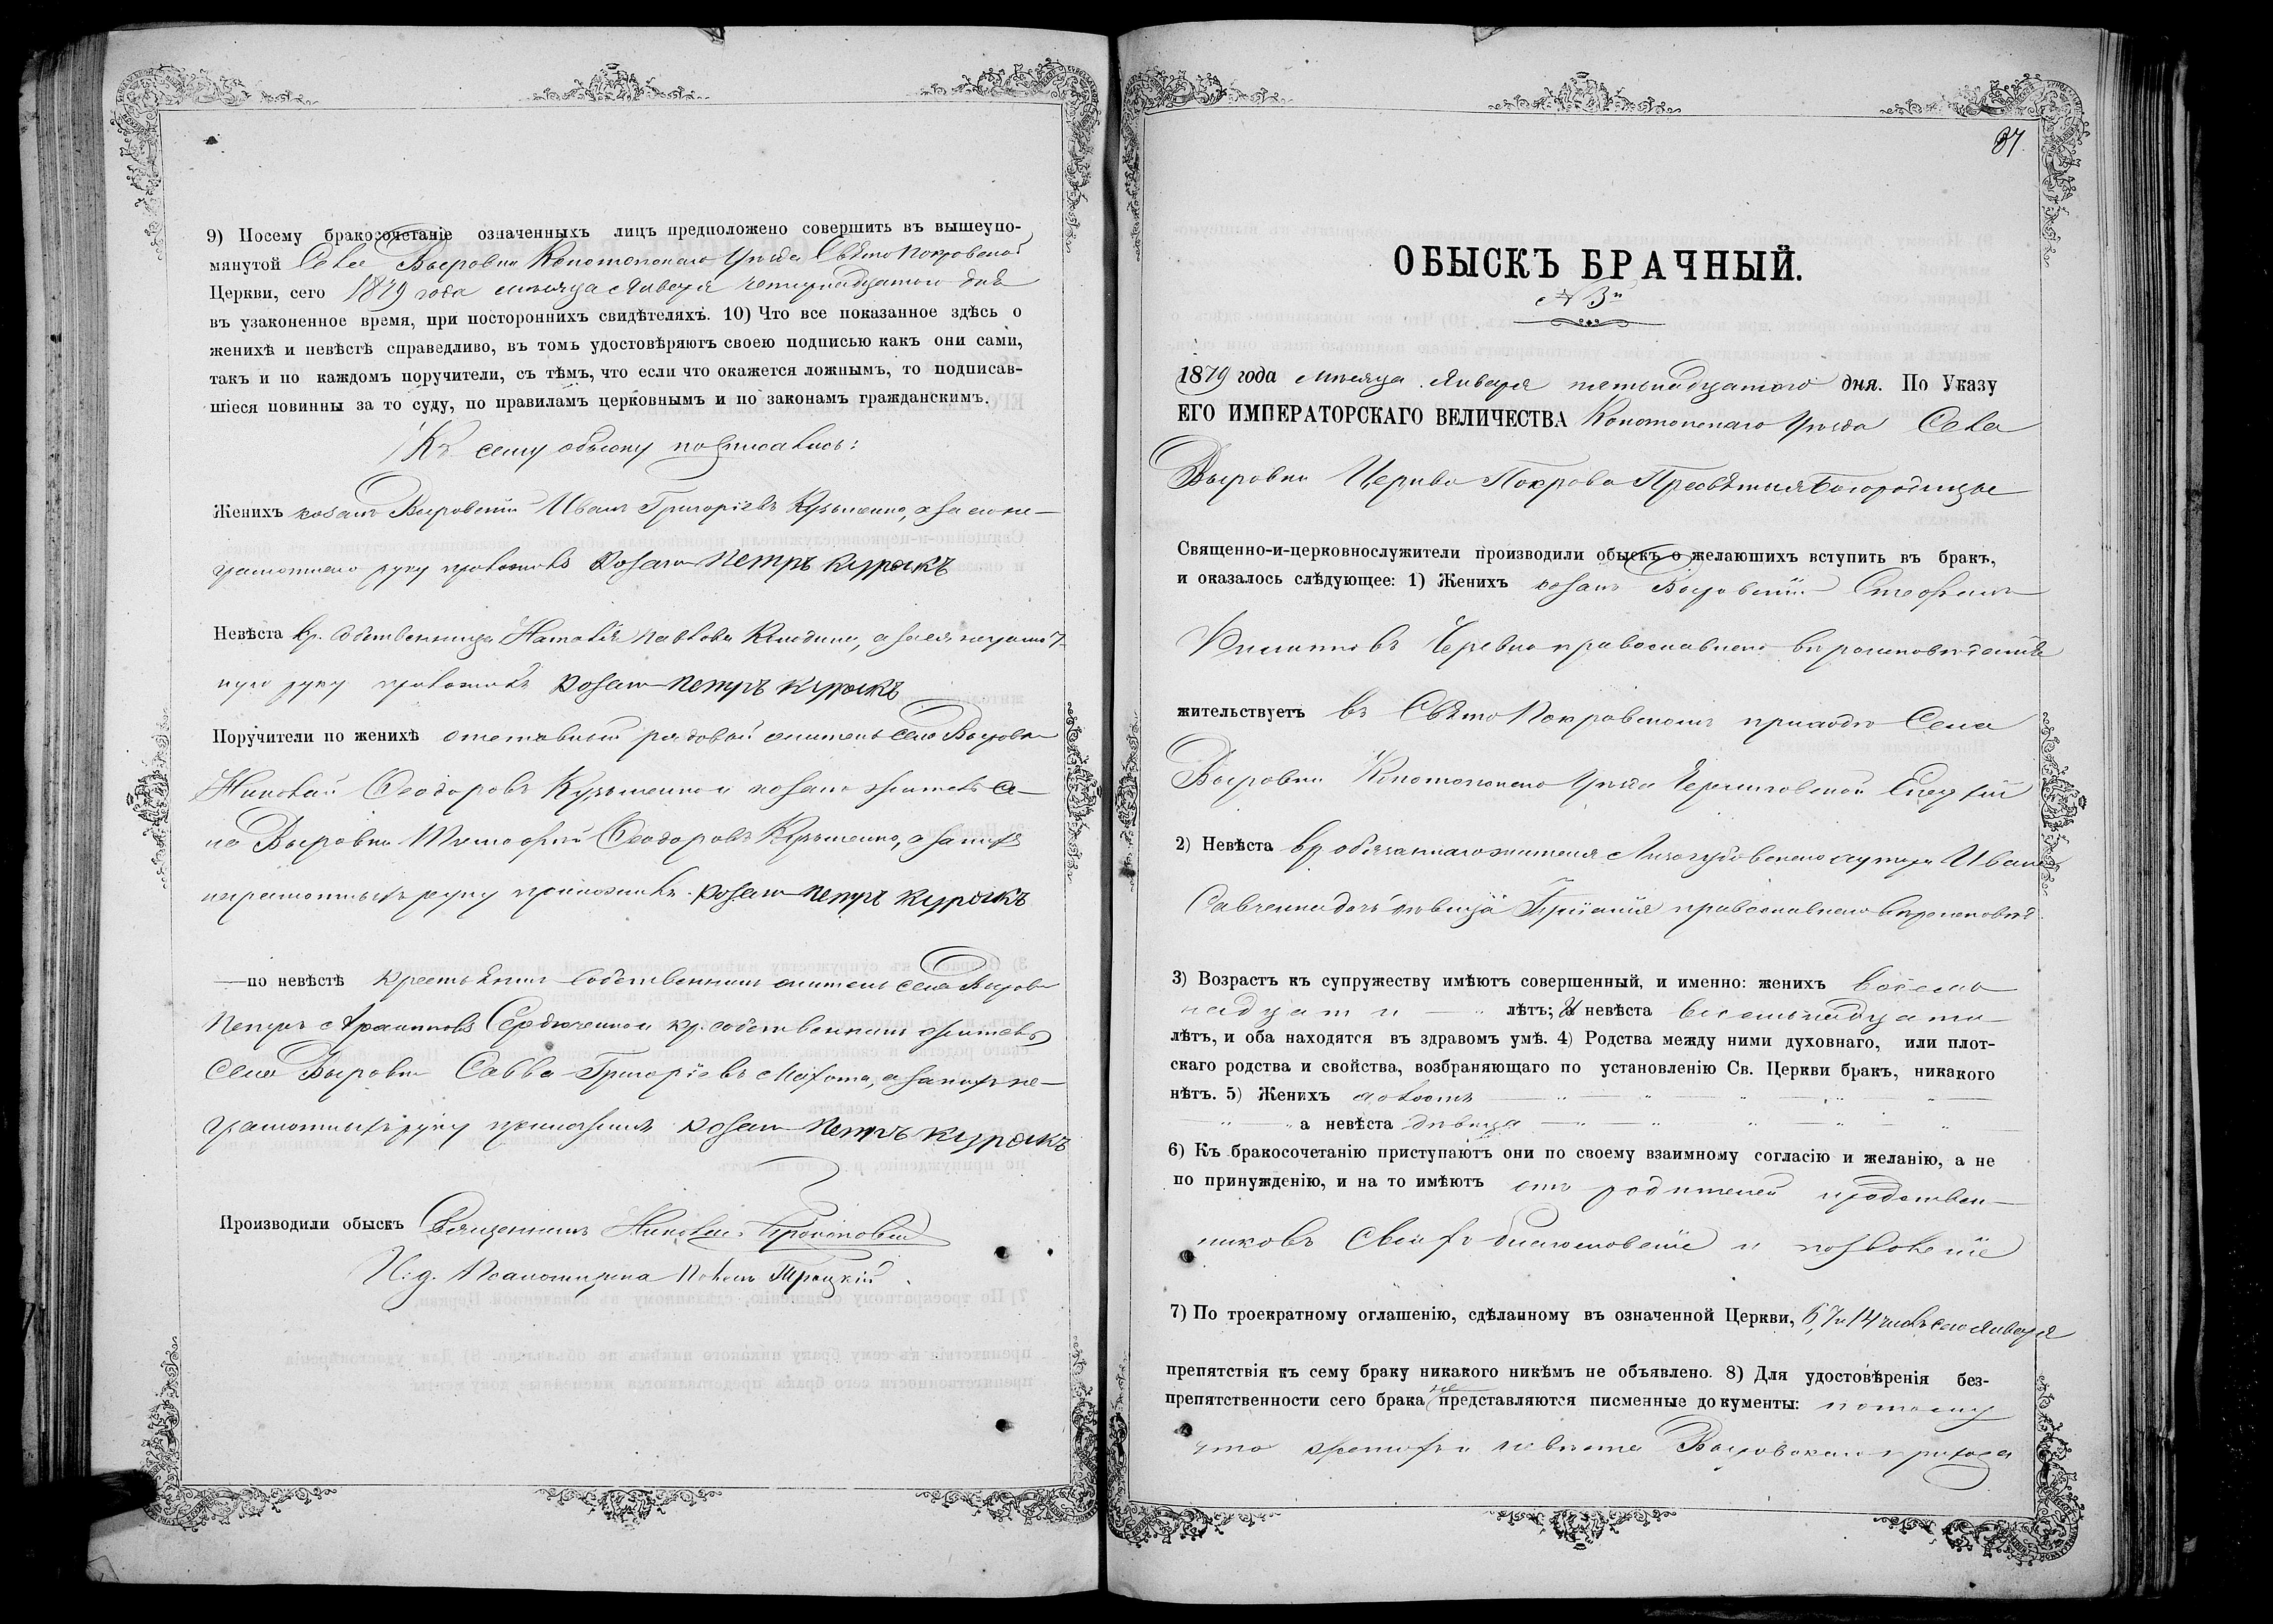 9) Посему бракосочетаніе означенныхъ лицъ предположено совершить въ вышеупо-
мянутой Села Выровки Конотопскаго Уѣзда Свято Покровской
Церкви, сего 1879 года мѣсяца Января четырнадцатого дня
въ узаконенное время, при постороннихъ свидѣтеляхъ. 10) Что все показанное здѣсь о
женихѣ и невѣстѣ справедливо, въ томъ удостовѣряютъ своею подписью какъ они сами,
такъ и по каждомъ поручители, съ тѣмъ, что если что окажется ложнымъ, то подписав-
шіеся повинны за то суду, по правиламъ церковнымъ и по законамъ гражданскимъ.
Къ сему обыску подписались:
Женихъ козакъ Выровскій Иванъ Григоріевъ Кузьменко, а за его не-
грамотнаго руку приложилъ Козакъ Петръ Куррыкъ
Невѣста кр. собственница Наталія Павлова, а за ея неграмот-
ную руку приложилъ Козакъ Петръ Куррыкъ
Поручители по женихѣ отставный рядовый житель села Выровки
Николай Феодоровъ Кузьменко и козакъ житель се-
ла Выровки Тимофей Феодоровъ Кузьменко, а за нихъ
неграмотныхъ руку приложилъ Козакъ Петръ Куррыкъ
—по невѣстѣ крестьянинъ собственникъ житель села Выровки
Петръ Сердюченко и кр. собственникъ житель
села Выровки Савва Григоріевъ, а за нихъ не-
грамотныхъ руку приложилъ Козакъ Петръ Куррыкъ
Производили обыскъ Священникъ Николай
И. д. Псаломщика Павелъ Троцкій
37.
ОБЫСКЪ БРАЧНЫЙ.
№ 3й
1879 года мѣсяца Января четырнадцатого дня. По Указу
ЕГО ИМПЕРАТОРСКАГО ВЕЛИЧЕСТВА Конотопскаго Уѣзда Села
Выровки Церкви Покрова Пресвятыя Богородицы
Священно-и-церковнослужители производили обыскъ о желающихъ вступить въ бракъ,
и оказалось слѣдующее: 1) Женихъ козакъ Выровскій Стефанъ
Филиповъ Черевко православнаго вѣроисповѣданія
жительствуетъ въ Свято Покровскомъ приходѣ Села
Выровки Конотопскаго Уѣзда Черниговской Епархіи
2) Невѣста вр. обязаннаго жителя хутора Ивана
Савченка дочь дѣвица православнаго вѣроисповѣд.
3) Возрастъ къ супружеству имѣютъ совершенный, и именно: женихъ восем-
надцати лѣтъ; а невѣста восемнадцати
лѣтъ, и оба находятся въ здравомъ умѣ. 4) Родства между ними духовнаго, или плот-
скаго родства и свойства, возбраняющаго по установленію Св. Церкви бракъ, никакого
нѣтъ. 5) Женихъ холостъ
а невѣста дѣвица
6) Къ бракосочетанію приступаютъ они по своему взаимному согласію и желанію, а не
по принужденію, и на то имѣютъ отъ родителей и родствен-
никовъ своихъ благословеніе и позволеніе
7) По троекратному оглашенію, сдѣланному въ означенной Церкви, 6, 7 и 14 числъ сего Января
препятствія къ сему браку никакого никѣмъ не объявлено. 8) Для удостовѣренія без-
препятственности сего брака не представляются писменные документы: потому
что женихъ и невѣста Выровскаго прихода